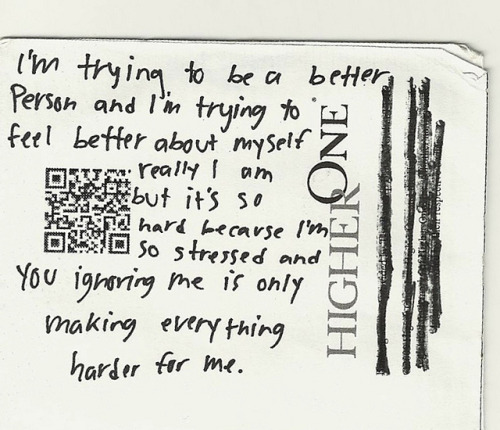 I'm trying to be a better
Person and I'm trying to
feel better about myself
really I am
but it's so
hard because I'm
so stressed and
You ignoring me is only
making everything
harder for me.
HIGHER ONE